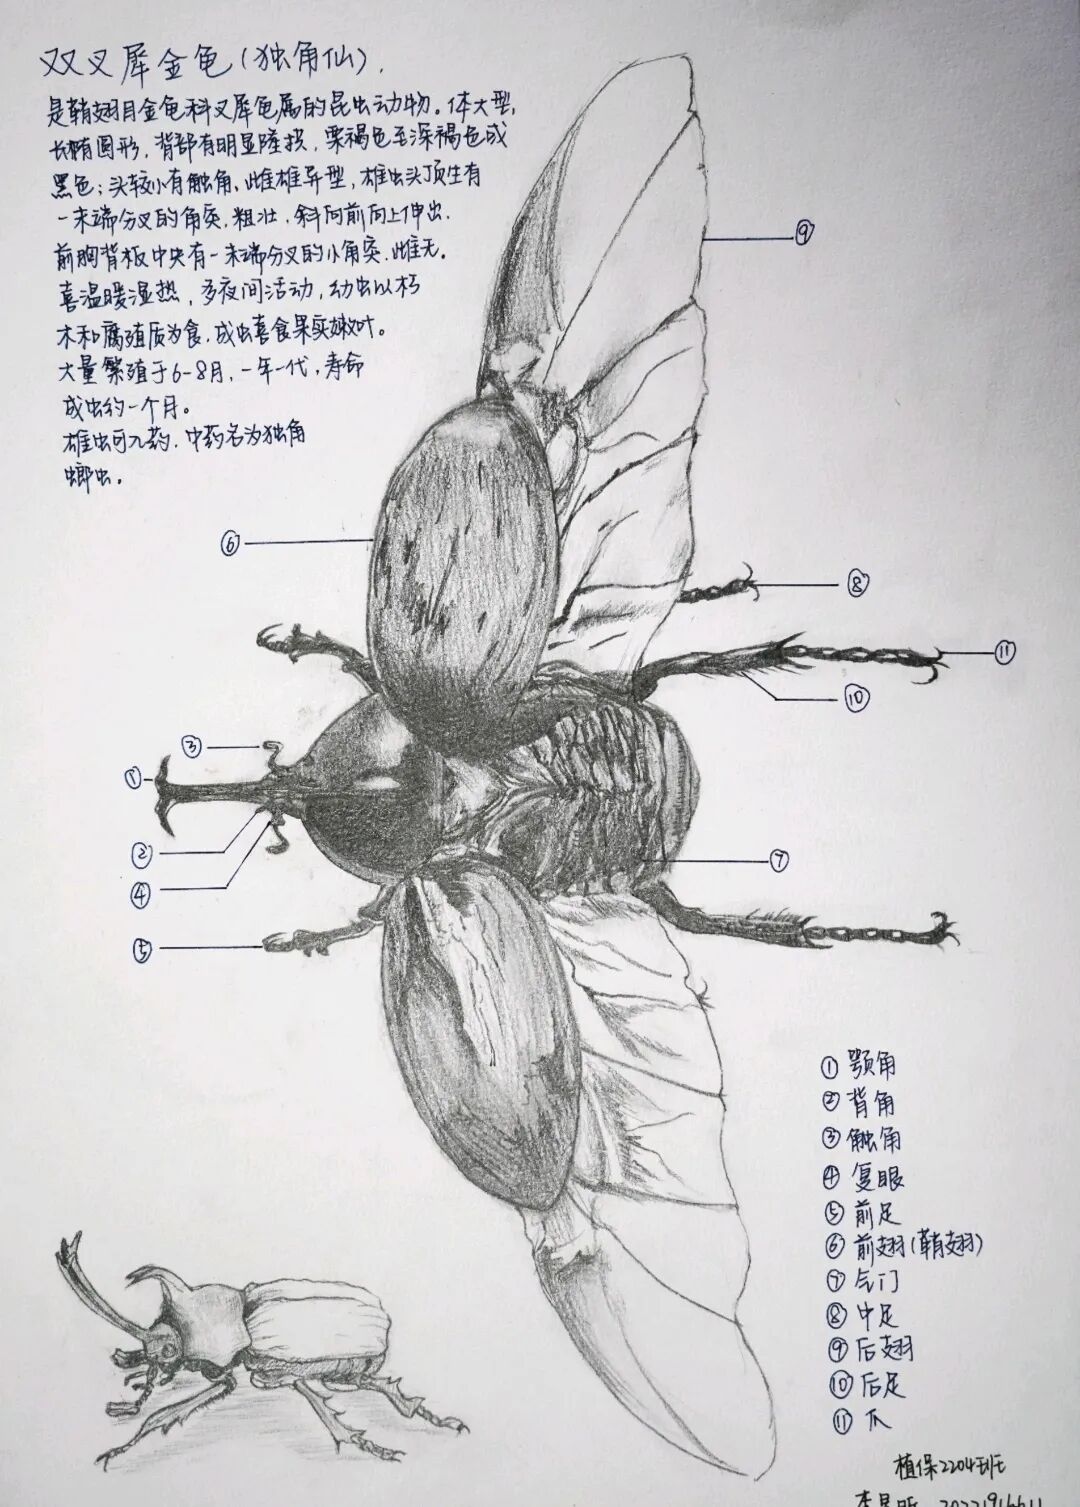 双叉犀金龟(独角仙).
是鞘翅目金龟科叉犀龟属的昆虫动物。体大型,
长椭圆形,背部有明显隆拱,栗褐色至深褐色或
黑色;头较小有触角、雌雄异型,雄虫头顶生有
一末端分叉的角突,粗壮,斜向前向上伸出.
前胸背板中央有一末端分叉的小角突.雌无。
喜温暖湿热,多夜间活动,幼虫以朽
木和腐殖质为食,成虫喜食果实嫩叶。
大量繁殖于6-8月,一年一代,寿命
成虫约一个月。
雄虫可入药.中药名为独角
螂虫。
⑨
⑥
⑧
⑪
⑩
③
①
②
⑦
④
⑤
①颚角
②背角
③触角
④复眼
⑤前足
⑥前翅(鞘翅)
⑦气门
⑧中足
⑨后翅
⑩后足
⑪爪
植保2204班